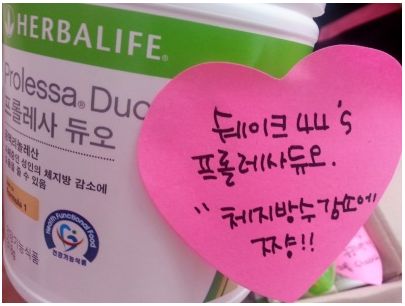 HERBALIFE
Prolessa® Duo
프롤레사 듀오
성인의 체지방 감소에
줄 수 있음
Health Functional Food
건강기능식품
건강기능식품
쉐이크 44,5
프롤레사듀오.
"체지방수감소에
짜앙!!